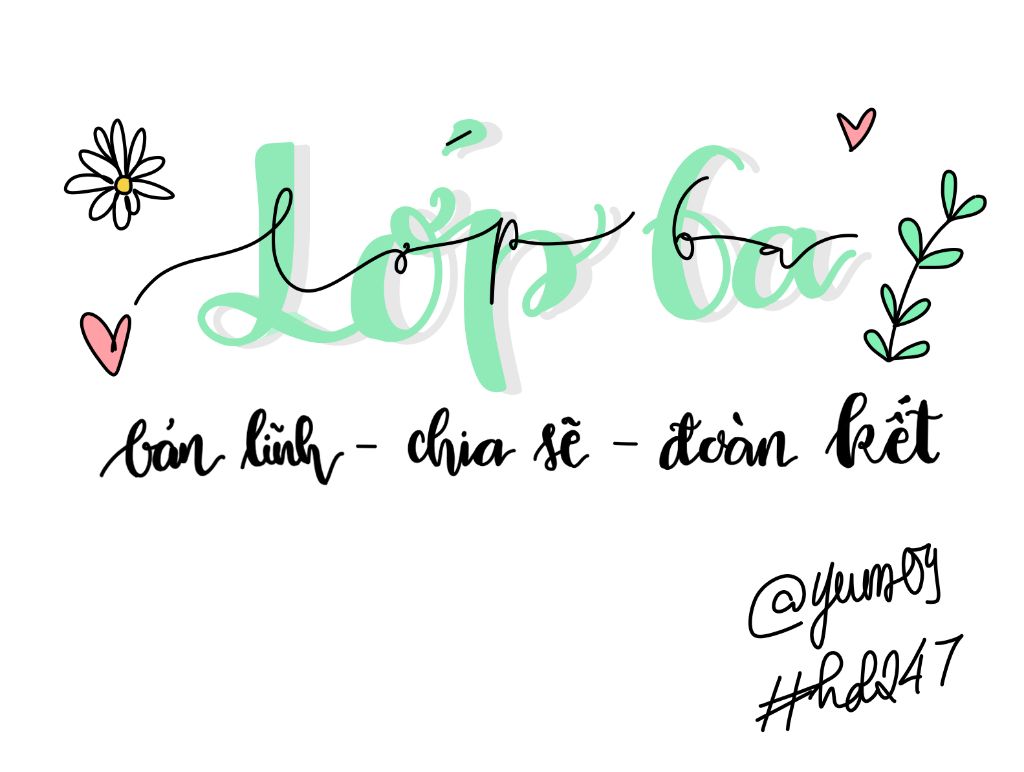 Lớp 6a
bản lĩnh - chia sẽ - đoàn kết
#hd247